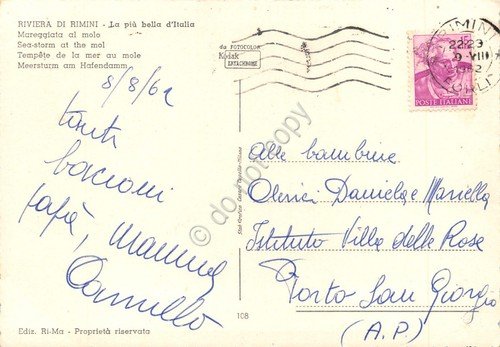 RIVIERA DI RIMINI - La più bella d'Italia
Mareggiata al molo
Sea-storm at the mol
Tempête de la mer au mole
Meersturm am Hafendamm
da FOTOCOLOR
Kodak
EKTACHROME
RIMINI
22-23
9-VIII
1962
FORLI
POSTE ITALIANE
8/8/62
tanti
bacioni
papà, mamma
Camillo
Alle bambine
Daniela e Mariella
Istituto Villa delle Rose
Porto San Giorgio
(A.P)
108
Ediz. Ri-Ma - Proprietà riservata
do not copy